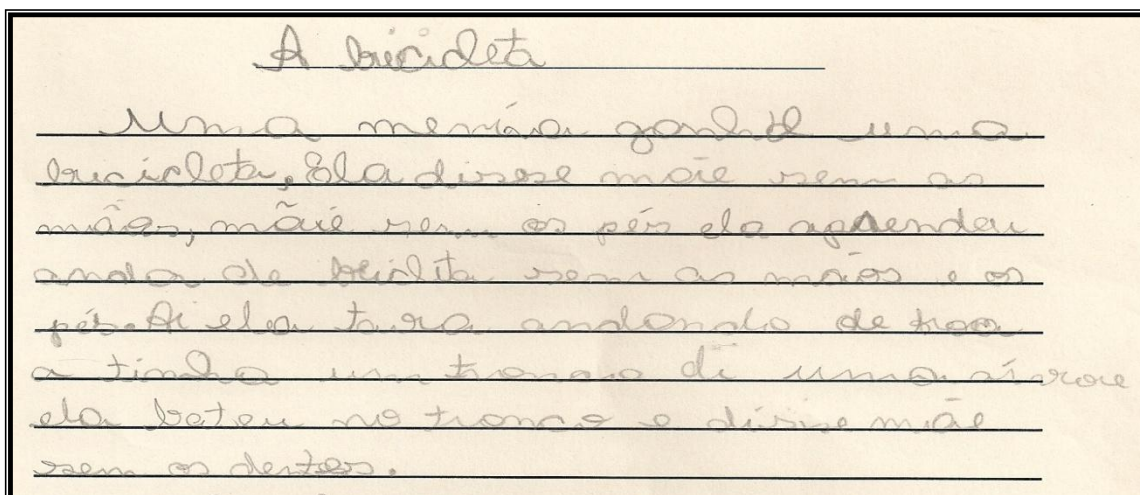 A bricicleta
Uma menina ganhol uma
bricicleta. Ela disse mãe sem as
mãos, mãe sem os pés ela aprendeu
anda de bicicleta sem as mãos e os
pés. Ai ela tava andando de
a tinha um tronco di uma árvore
ela bateu no tronco e disse mãe
sem os dentes.